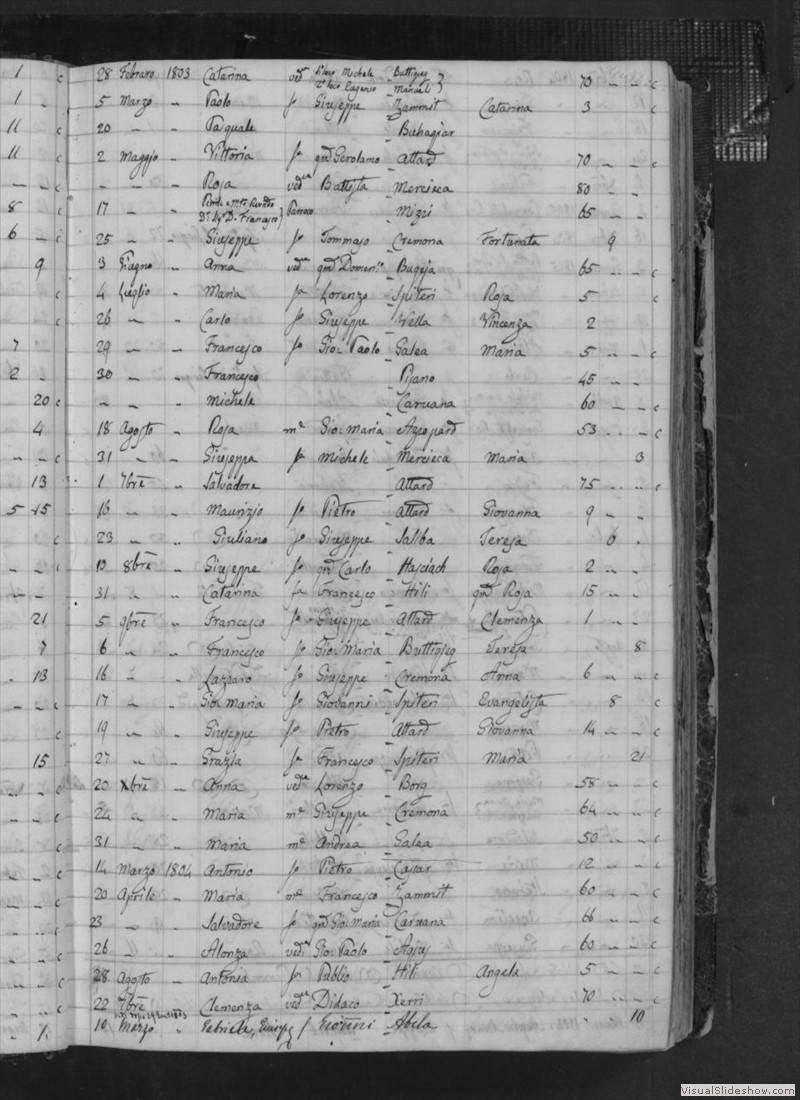 1 c 28 Febraro 1803 Catarina ved.a Michele Buttigieg 70 " " c
2° Eugenio Manueli
1 " 5 Marzo " Paolo f° Giuseppe Zammit Catarina 3 c
11 c 20 " " Pasquale Buhagiar
11 c 2 Maggio " Vittoria fa qm Gerolamo Attard 70 " " c
" " c " " " Rosa ved.a Battista Mercieca 80 " "
8 c 17 " D. Francesco Parroco Mizzi 65 " "
6 " c 25 " " Giuseppe f° Tommaso Cremona Fortunata 9
9 3 Giugno " Anna ved.a qm Domen.co Bugeja 65 " " c
c 4 Luglio " Maria fa Lorenzo Spiteri Rosa 5 c
c 26 " " Carlo f° Giuseppe Vella Vincenza 2
7 29 " " Francesco f° Gio: Paolo Galea Maria 5 " " c
2 " 30 " " Francesco Pisano 45 " "
20 c " " " Michele Caruana 60 " " c
4 18 Agosto " Rosa m.e Gio: Maria Azzopard 53 " " c
" " c 31 " " Giuseppa fa Michele Mercieca Maria 3
13 1 7bre " Salvadore Attard 75 " " c
5 15 16 " " Maurizio f° Pietro Attard Giovanna 9 "
c 23 " " Giuliano f° Giuseppe Saliba Teresa 6 "
" " c 10 8bre " Giuseppe f° qm Carlo Hasciach Rosa 2 " "
" " 31 " " Catarina fa Francesco Hili qm Rosa 15 " "
21 5 9bre " Francesco f° Giuseppe Attard Clemenza 1 " "
7 6 " " Francesco f° Gio: Maria Buttigieg Teresa 8
" 13 16 " Lazzaro f° Giuseppe Cremona Anna 6 " c
" " c 17 " " Gio: Maria f° Giovanni Spiteri Evangelista 8 c
c 19 " Giuseppe f° Pietro Attard Giovanna 14 " " c
15 27 " " Grazia fa Francesco Spiteri Maria 21
" " c 20 Xbre " Anna ved.a Lorenzo Borg 58 " " c
" " c 24 " " Maria m.e Giuseppe Cremona 64 " " c
" " c 31 " " Maria m.e Andrea Galea 50 " " c
" " c 14 Marzo 1804 Antonio f° Pietro Casar 12 " " c
" " c 20 Aprile " Maria m.e Francesco Zammit 60 " " c
" " c 23 " Salvadore f° qm Gio: Maria Caruana 66 " " c
" " c 26 " Alonza ved.a Gio: Paolo Agius 60 " " c
" " c 28 Agosto " Antonia fa Publio Hili Angela 5 " " c
" " c 22 7bre " Clemenza ved.a Didaco Xerri 70 " " c
" 7. 10 Marzo " Giovanni Abela 10
VisualSlideshow.com